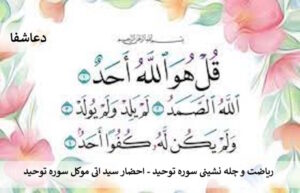 دعاشفا
بسم الله الرحمن الرحیم
قُلْ هُوَ ٱللَّهُ أَحَدٌ ۝١
ٱللَّهُ ٱلصَّمَدُ ۝٢ لَمْ يَلِدْ وَلَمْ يُولَدْ ۝٣
وَلَمْ يَكُن لَّهُۥ كُفُوًا أَحَدٌۢ ۝٤
ریاضت و چله نشینی سوره توحید - احضار سید اتی موکل سوره توحید